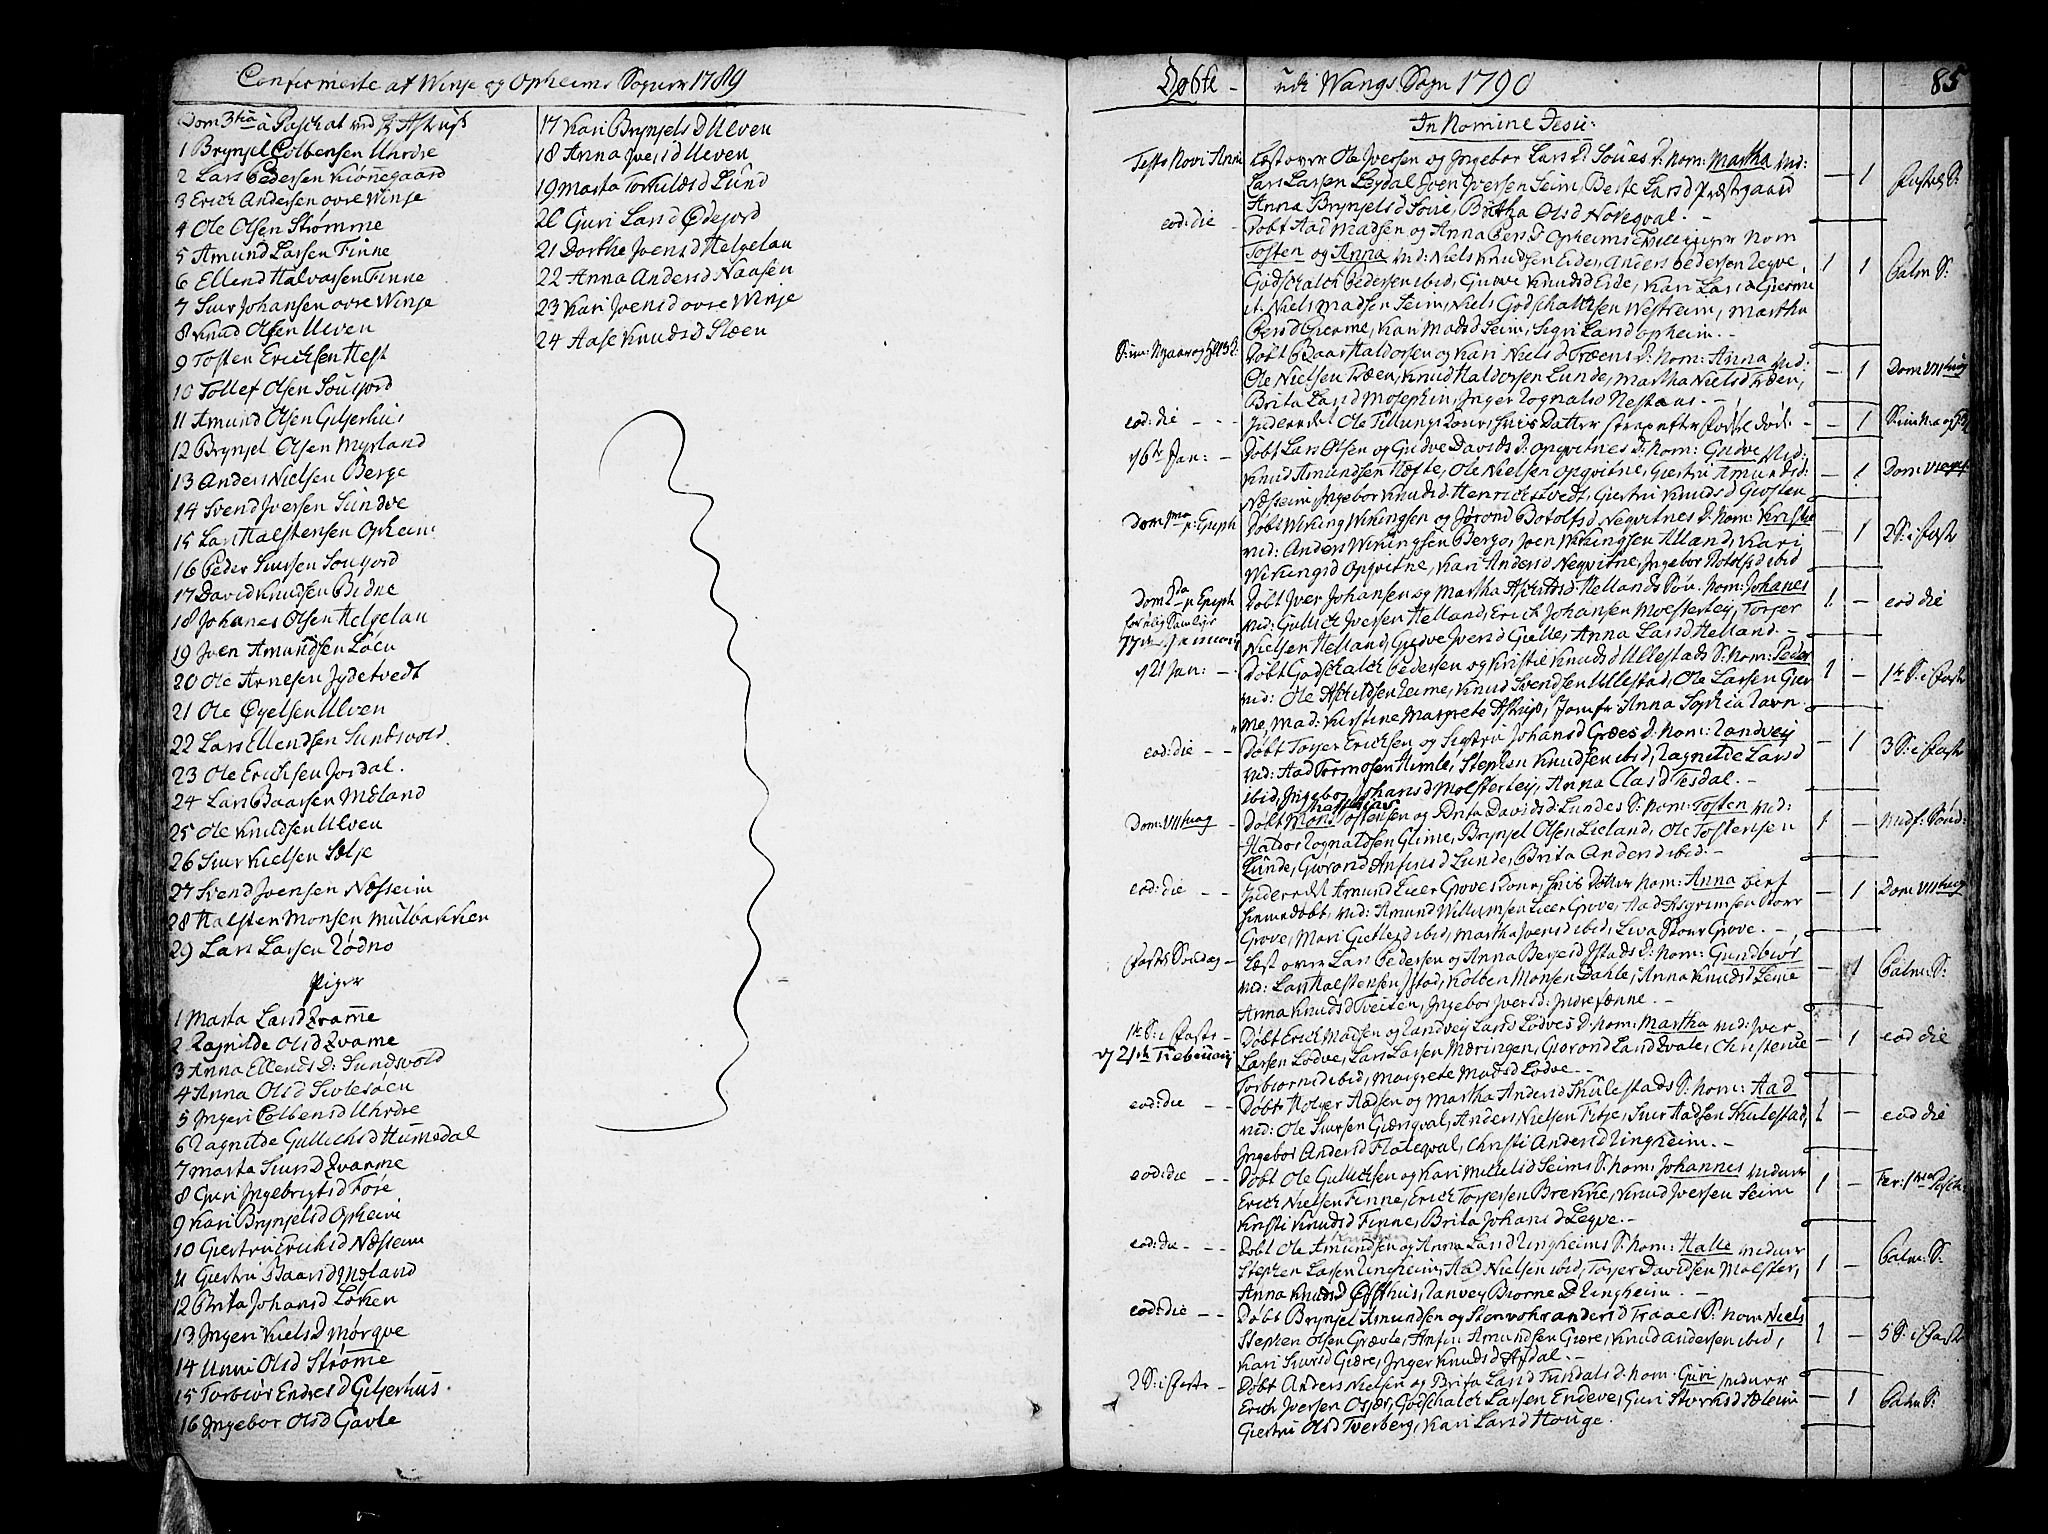 Confirmerte af Winje og Opheims Sogner 1789
Dom 3tia à Paschat ved H: Astrup
1 Brynjel Colbensen Uhrdre
2 Lars Pedersen Kionegaard
3 Erich Andersen øvre Winje
4 Ole Olsen Strømme
5 Amund Larsen Finne
6 Ellend Halvarsen Finne
7 Siur Johansen øvre Winje
8 Knud Olsen Ulven
9 Tosten Erichsen Hest
10 Tollef Olsen Soufjord
11 Amund Olsen Gilserhus
12 Brynjel Olsen Myrland
13 Anders Nielsen Berge
14 Svend Jversen Sundve
15 Lars Halstensen Opheim
16 Peder Siursen Soufjord
17 David Knudsen Bidne
18 Johanes Olsen Helgelan
19 Joen Amundsen Løen
20 Ole Arnesen Jydetvedt
21 Ole Øyelsen Ulven
22 Lars Ellendsen Sundsvold
23 Ole Erichsen Jordal.
24 Lars Baarsen Mæland
25 Ole Knudsen Ulven
26 Siur Kielsen Sælje
27 Svend Joensen Næsseim
28 Halsten Monsen Mulbakken
29 Lars Larsen Rødno
Piger
1 Marta Larsd Qvamme
2 Ragnilde Olsd Qvame
3 Anna Ellends D: Sundsvold
4 Anna Olsd Sivlesøen
5 Jngeri Colbensd Uhrdre
6 Ragnilde Gullichsd Humedal
7 Marta Siursd Qvarme
8 Guri Jngebrigtsd Føre
9 Kari Brynjelsd Opheim
10 Giertru Erichsd Næsseim
11 Giertru Baarsd Mæland
12 Brita Johansd Løken
13 Jngeri Kielsd Mørqve
14 Unni Olsd Strøme
15 Torbiør Endresd Gilserhus
16 Jngebor Olsd Gavle
17 Kari Brynjelsd Ulven
18 Anna Jversd Ulven
19 Marta Torkildsd Lund
20 Guri Larsd Ødejord
21 Dorthe Joensd Helgelan
22 Anna Andersd Naasen
23 Kari Joensd øvre Winje
24 Aase Knudsd Slæen
Døbte udi Wangs Sogn 1790
85
In Nomine Jesu:
Festo Novi Anni Læst over Ole Jversen og Jngebor Lars D: Soues D: nom: Martha vid:
Lars Larsen Løydal Joen Jversen Seim, Berte Larsd Præstegaard
Anna Brynjelsd Soue, Britha Olsd Noreqval. — 1
eod: die Døbt Aad Madsen og Anna Pers D Opheims Tvillinger nom
Tosten og Anna vid: Niels Knudsen Eide, Anders Pedersen Legve, 1 1 Palm S:
Godschalch Pedersen ibid, Guøve Knudsd Eide, Kari Larsd Gierme
it: Niels Madsen Seim, Niels Godschalksen Westreim, Martha
Persd Gierme, Kari Madsd Seim, Sigri Larsd Opheim. —
Døbt Baar Haldorsen og Kari Niels D Træens D: nom: Anna vid:
Ole Nielsen Træen, Knud Haldorsen Lunde, Martha Nielsd Træen, — 1
Brita Larsd Mosephin, Jnger Rognalsd Nestaas. —
eod: die Jnderredet Ole Tillungs Kones Huis Datter strax efter Fødsel død. — 1
d 6te Jan: Døbt Lars Olsen og Gudve Davids D: Opqvitnes D: nom: Gudve vid:
Knud Amundsen Hæfte, Ole Nielsen Opqvitne, Giertru Amundsd:
Næsseim, Jngebor Knudsd: Henrichstvedt, Giertru Knudsd Giosten — 1
Dom 1ma p: Epiph Døbt Wiking Wikingsen og Jørond Botolfsd Neqvitnes D: nom: Kristie
vid: Anders Wikingsen Berge, Joen Wikingsen Ulland, Kari — 1 2 S: i Faste
Wikingsd Opqvitne, Kari Andersd Neqvitne, Jngebor Botolfsd ibid
Dom 2da p Epiph Døbt Jver Johansen og Martha Askilds D: Hellands Søn nom: Johanes 1 — eod die
vid: Gullich Jversen Helland, Erich Johansen Mølsterley, Torger
Nielsen Helland, Gudve Jversd Gielle, Anna Larsd Helland. —
d 21 Jan: Døbt Godschalch Pedersen og Kristie Knudsd Ullestads S: nom: Peder 1 — 1te S: i Faste
vid: Ole Askildsen Leime, Knud Svendsen Ullestad, Ole Larsen Gier
me, Mad: Kirstine Margrete Astrup, Jomfr Anna Sophia Ravn.
eod: die Døbt Torger Erichsen og Sigtru Johansd Græes D: nom: Randvey — 1 3 S: i Faste
vid: Aad Tormosen Himle, Stephen Knudsen ibid, Ragnilde Larsd
ibid, Jngebor Johansd Mølsterley, Anna Clasd Tesdal. —
Dom: VIItuag Døbt Mons Tostensen og Brita Davidsd: Lundes S: nom: Tosten vid: 1 — Midf: Sønd:
Haldor Rognaldsen Glime, Brynjel Olsen Lieland, Ole Tostensen
Lunde, Gurond Anfinsd Lunde, Brita Andersd ibid. —
eod: die Jnderredet Amund Lieer Groves Kone, huis Dotter nom: Anna blef — 1 Dom VIItuag
hiemedøbt, vid: Amund Willumsen Lieer Grove, Aad Asgrimsen Stoer
Grove, Mari Gietlesd ibid, Martha Joensd ibid, Liva Stoer Grove. —
Fastel: Søndag Læst over Lars Pedersen og Anna Bergesd Jstads D: nom: Gundbiør — 1 Palm: S:
vid: Lars Halstensen Jstad, Kolben Monsen Dahle, Anna Knudsd Leime
Anna Knudsd Tveiten, Jngebor Jversd: Jndrefænne. —
1te S: i Faste Døbt Erich Madsen og Randvey Larsd Lodves D: nom: Martha vid: Jver — 1 eod die
d 21te Februarij Larsen Lødve, Lars Larsen Mæringen, Giørond Larsd Qvale, Christense
Torbiornsd ibid, Margrete Madsd Lodve. —
eod: die Døbt Holger Aadsen og Martha Andersd Skulestads S: nom: Aad 1 — eod die
vid: Ole Siursen Giæriqval, Anders Nielsen Titje, Siur Aadsen Skulestad,
Jngebor Andersd Flateqval, Christi Andersd Ringheim. —
eod: die Døbt Ole Gullichsen og Kari Mikkelsd Seims S: nom: Johannes viduer 1 —
Erich Nielsen Finne, Erich Torgersen Brekke, Knud Jversen Seim
Kristi Knudsd Finne, Brita Johansd Legve. —
eod: die Døbt Ole Amundsen og Anna Larsd Ringheims S: nom: Halle viduer 1 — Palm: S:
Stephen Larsen Ringheim, Aad Nielsen ibid, Torger Davidsen Mølster,
Anna Knudsd Offthus, Ranvey Biørne D: Ringheim. —
eod: die Døbt Brynjel Amundsen og Stenvohr Andersd Traaes S: nom Niels 1 — 5 S: i Faste
Stephen Olsen Græve, Anfin Amundsen Giære, Knud Andersen ibid,
Kari Siursd Giære, Jnger Knudsd Afdal. —
2 S: i Faste Døbt Anders Nielsen og Brita Larsd Tundals D: nom: Guri, viduer — 1 Palm S:
Erich Jversen Osgier, Godschalch Larsen Endeve, Guri Storksd Sæleim
Giertru Olsd Tverberg, Kari Larsd Houge.